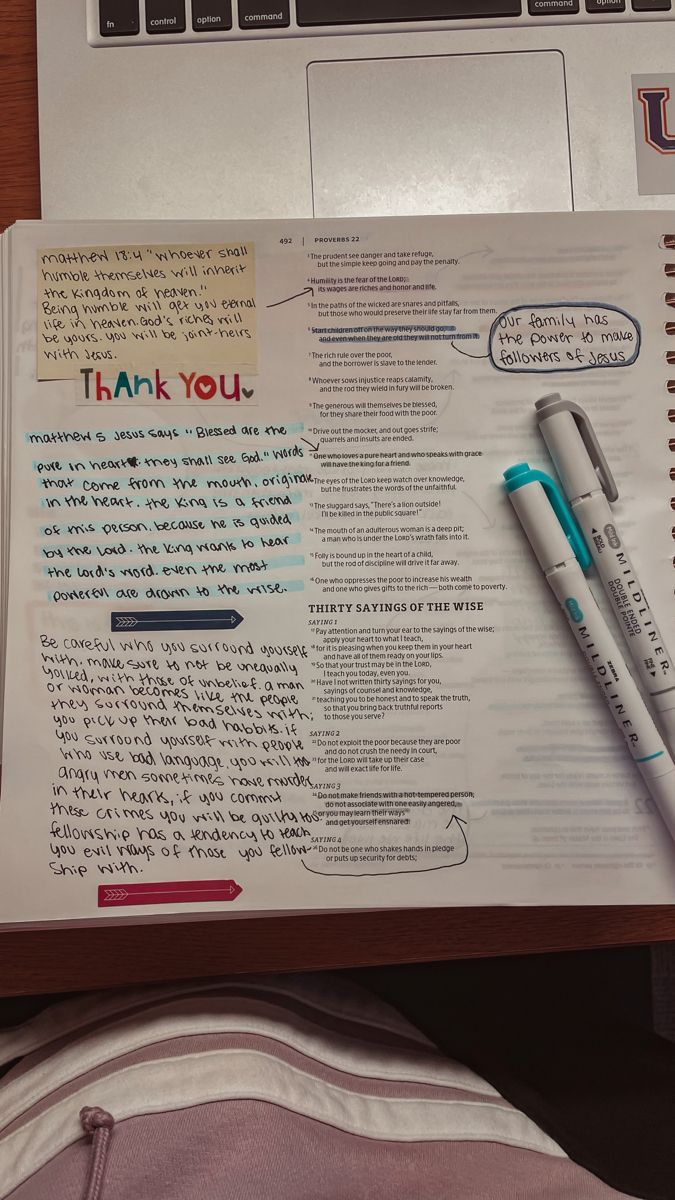 fn
control
option
command
command
option
U
492 | PROVERBS 22
matthew 18:4 "whoever shall
humble themselves will inherit
the kingdom of heaven."
Being humble will get you eternal
life in heaven. God's riches will
be yours. you will be joint-heirs
with Jesus.
THANK YOU
matthew 5 Jesus says "Blessed are the
pure in heart: they shall see God." words
that come from the mouth, originate
in the heart. the King is a friend
of this person, because he is guided
by the Lord. the King wants to hear
the Lord's word. even the most
powerful are drawn to the wise.
Be careful who you surround yourself
with. make sure to not be unequally
yolked, with those of unbelief. a man
or woman becomes like the people
they surround themselves with;
you pick up their bad habbits. if
you surround yourself with people
who use bad language, you will too
angry men sometimes have murder
in their hearts, if you commit
these crimes you will be guilty too
fellowship has a tendency to teach
you evil ways of those you fellow-
ship with.
3 The prudent see danger and take refuge,
but the simple keep going and pay the penalty.
4 Humility is the fear of the LORD;
its wages are riches and honor and life.
5 In the paths of the wicked are snares and pitfalls,
but those who would preserve their life stay far from them.
6 Start children off on the way they should go,
and even when they are old they will not turn from it.
7 The rich rule over the poor,
and the borrower is slave to the lender.
8 Whoever sows injustice reaps calamity,
and the rod they wield in fury will be broken.
9 The generous will themselves be blessed,
for they share their food with the poor.
10 Drive out the mocker, and out goes strife;
quarrels and insults are ended.
11 One who loves a pure heart and who speaks with grace
will have the king for a friend.
The eyes of the LORD keep watch over knowledge,
but he frustrates the words of the unfaithful.
13 The sluggard says, "There's a lion outside!
I'll be killed in the public square!"
14 The mouth of an adulterous woman is a deep pit;
a man who is under the LORD's wrath falls into it.
15 Folly is bound up in the heart of a child,
but the rod of discipline will drive it far away.
16 One who oppresses the poor to increase his wealth
and one who gives gifts to the rich — both come to poverty.
THIRTY SAYINGS OF THE WISE
SAYING 1
17 Pay attention and turn your ear to the sayings of the wise;
apply your heart to what I teach,
18 for it is pleasing when you keep them in your heart
and have all of them ready on your lips.
19 So that your trust may be in the LORD,
I teach you today, even you.
20 Have I not written thirty sayings for you,
sayings of counsel and knowledge,
21 teaching you to be honest and to speak the truth,
so that you bring back truthful reports
to those you serve?
SAYING 2
22 Do not exploit the poor because they are poor
and do not crush the needy in court,
23 for the LORD will take up their case
and will exact life for life.
SAYING 3
24 Do not make friends with a hot-tempered person,
do not associate with one easily angered,
or you may learn their ways
and get yourself ensnared.
SAYING 4
26 Do not be one who shakes hands in pledge
or puts up security for debts;
our family has
the power to make
followers of Jesus
MILDLINER
DOUBLE ENDED
DOUBLE POINTE
ZEBRA
MILDLINER